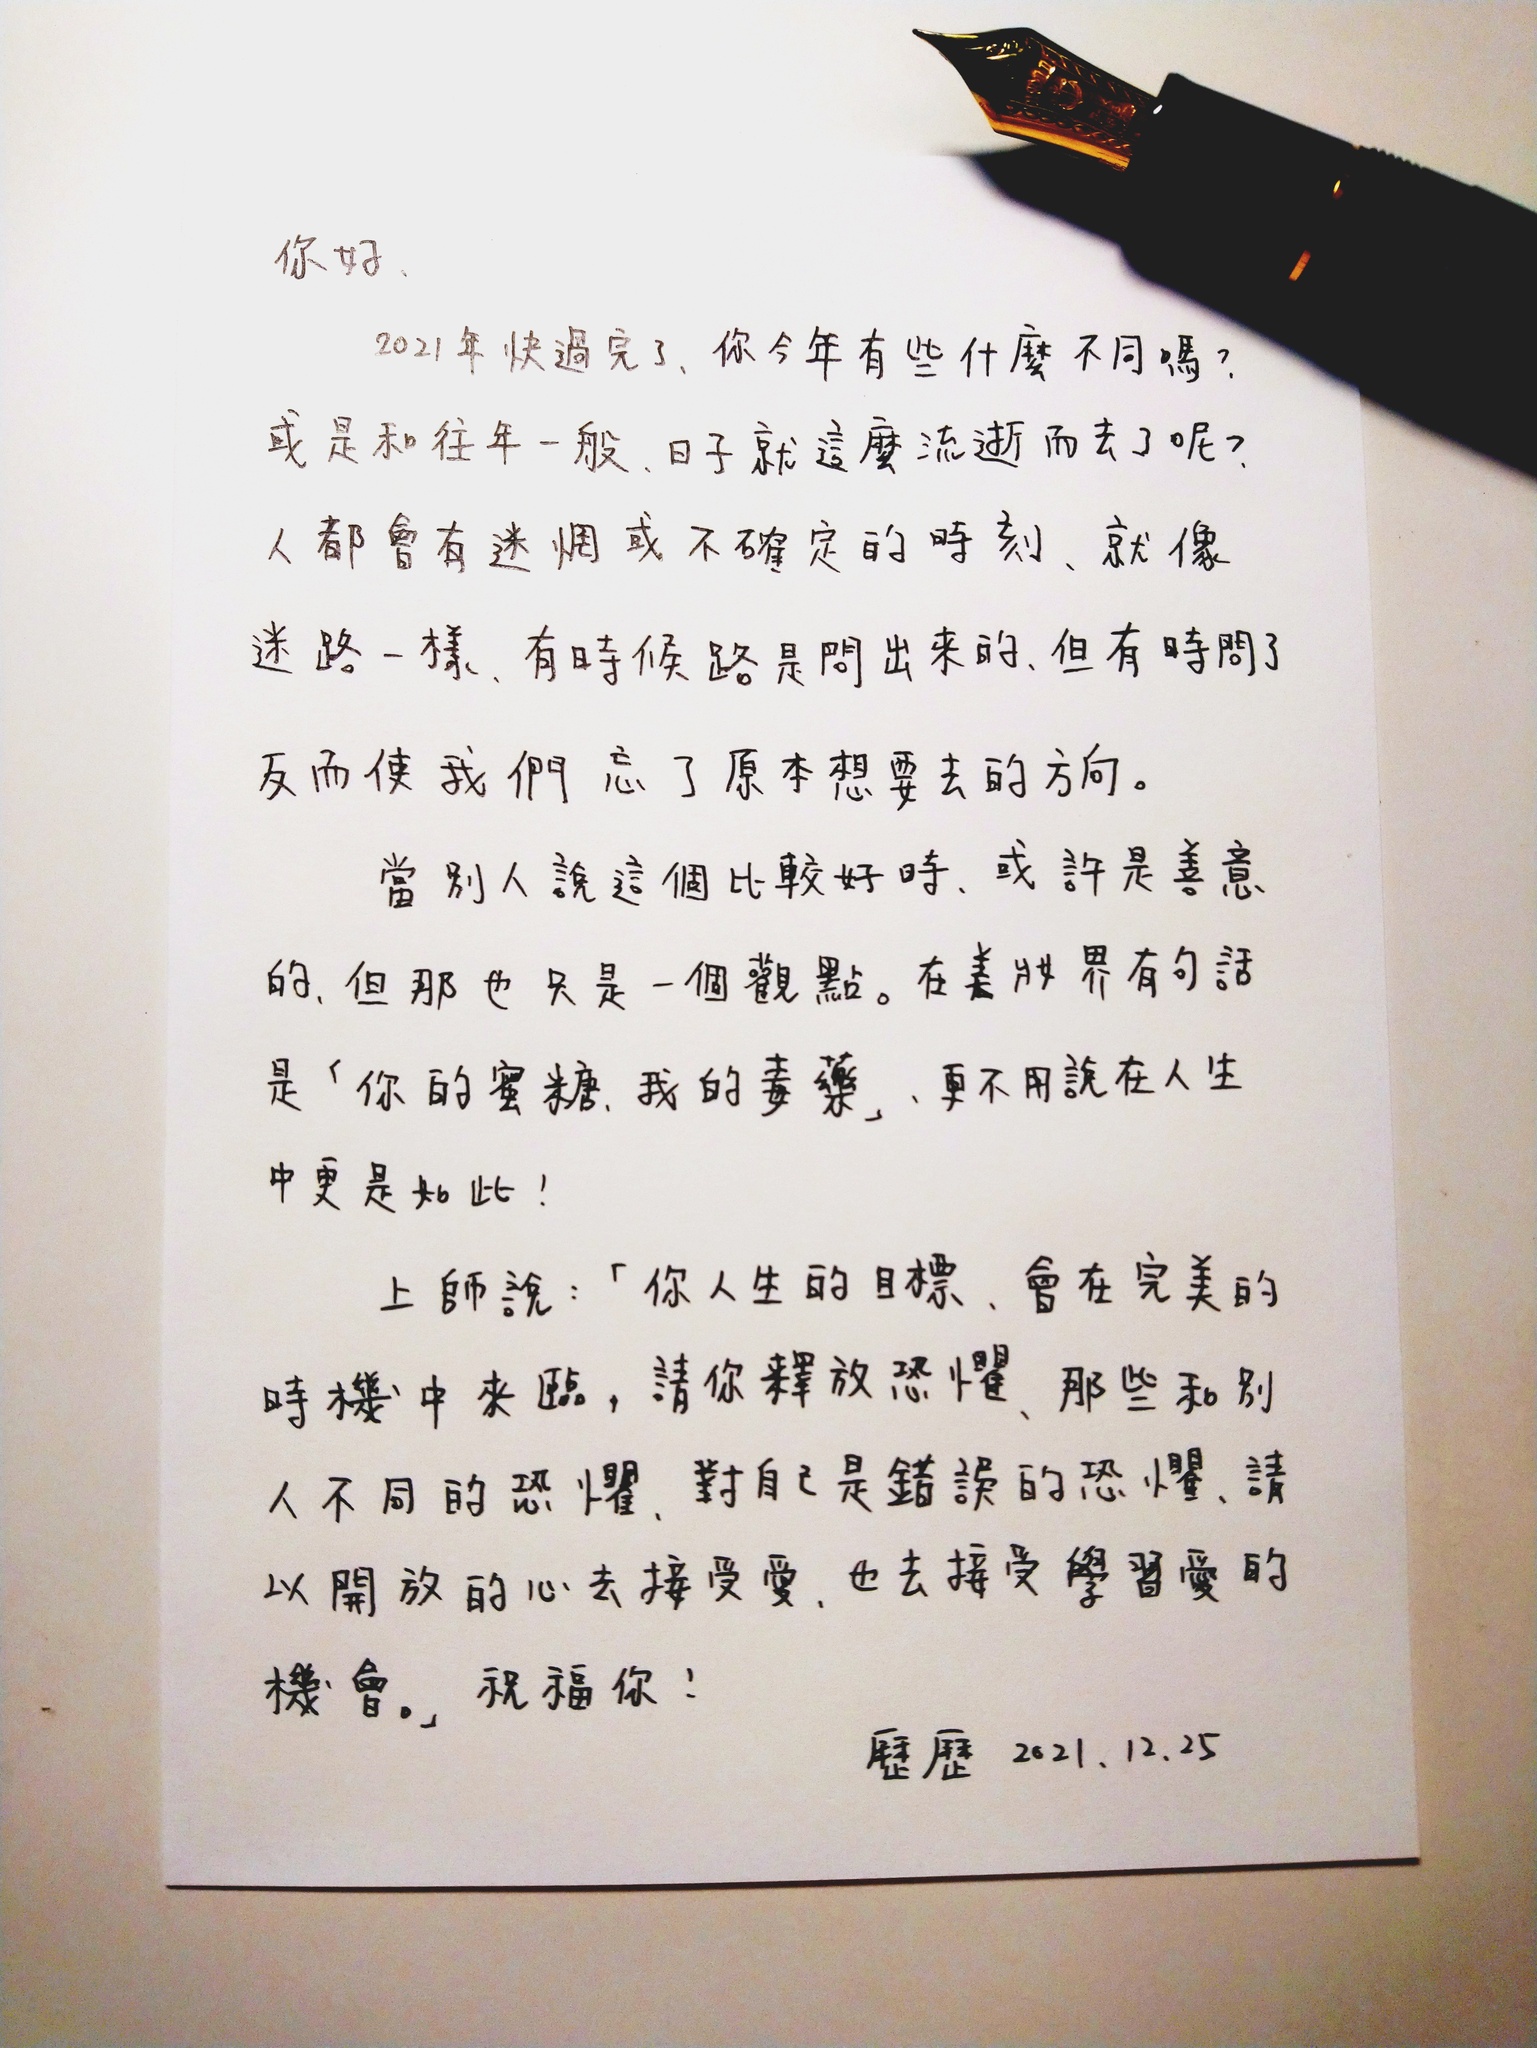 你好、
2021年快過完了、你今年有些什麼不同嗎？
或是和往年一般、日子就這麼流逝而去了呢？
人都會有迷惘或不確定的時刻、就像
迷路一樣、有時候路是問出來的、但有時問了
反而使我們忘了原本想要去的方向。
當別人說這個比較好時、或許是善意
的、但那也只是一個觀點。在美妝界有句話
是「你的蜜糖、我的毒藥」、更不用說在人生
中更是如此！
上師說：「你人生的目標、會在完美的
時機中來臨，請你釋放恐懼、那些和別
人不同的恐懼、對自己是錯誤的恐懼、請
以開放的心去接受愛、也去接受學習愛的
機會。」祝福你！
歷歷 2021.12.25